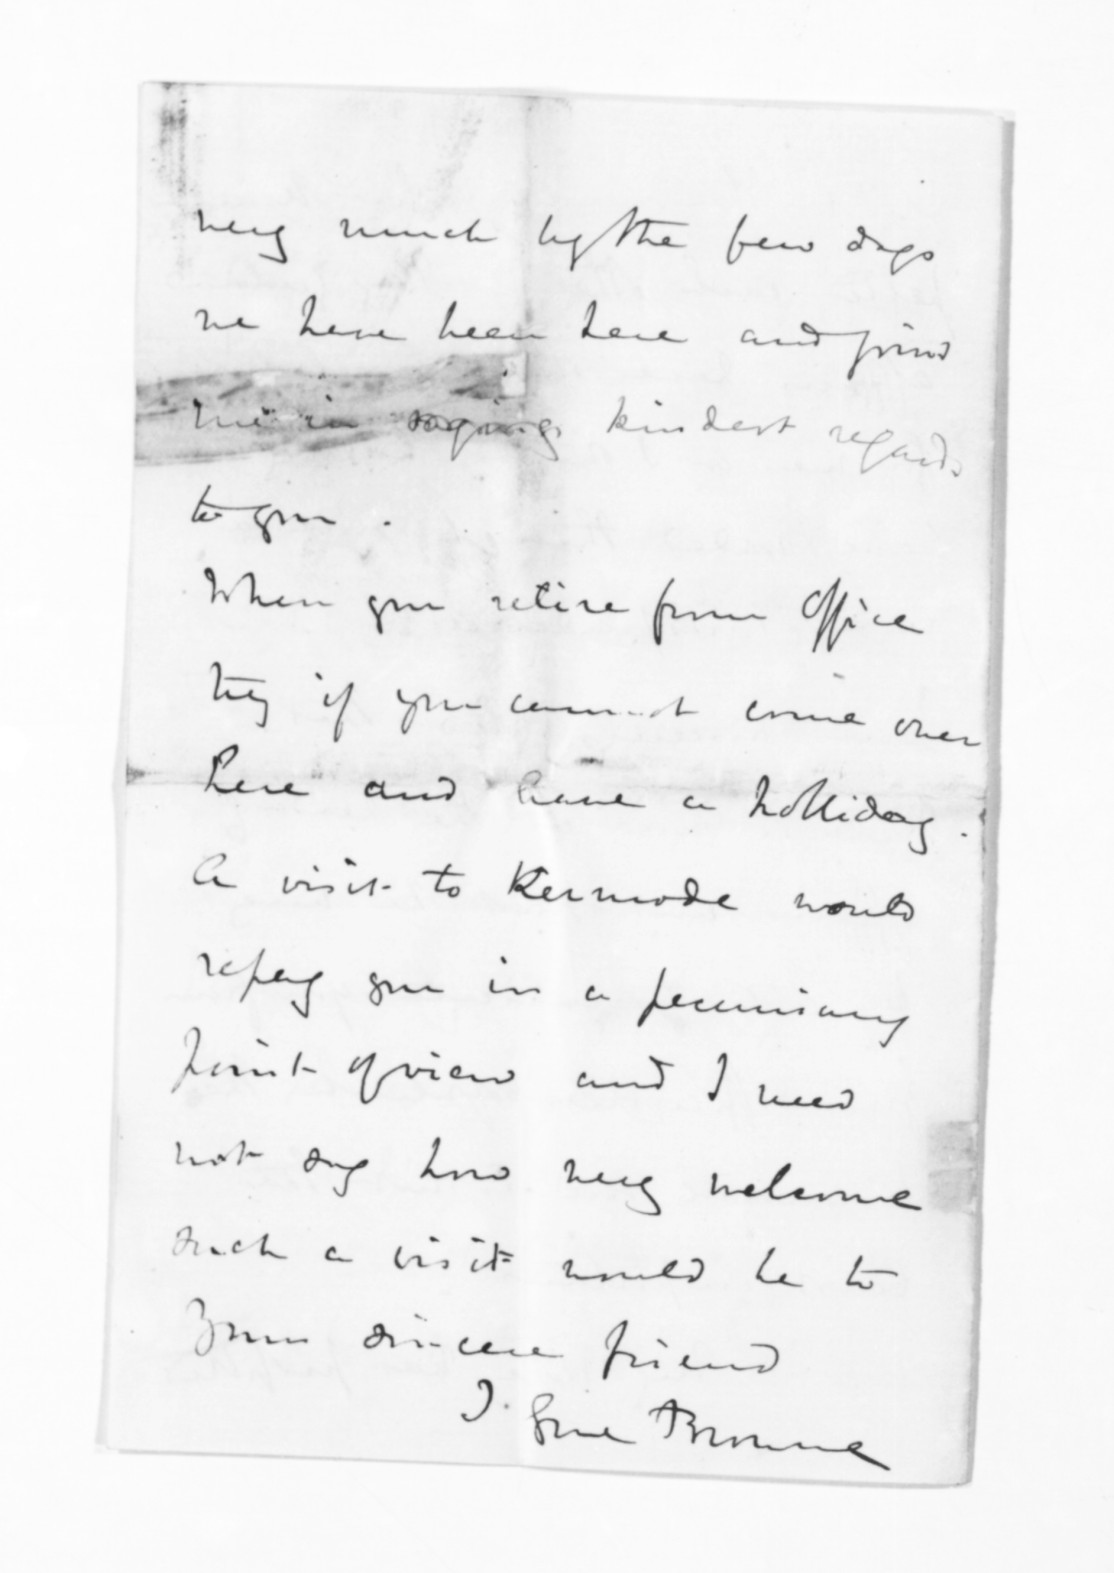 very much by the few days
we have been here and join
me in saying kindest regards
to you.
When you retire from Office
try if you cannot come over
here and have a holliday.
A visit to Kermode would
repay you in a pecuniary
point of view and I need
not say how very welcome
such a visit would be to
Your sincere friend
J. Gore Browne